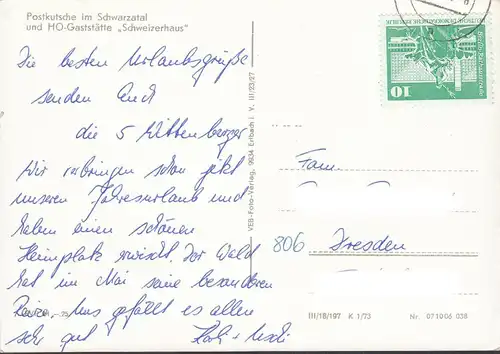 Postkutsche im Schwarzatal
und HO-Gaststätte „Schweizerhaus"
Die besten Urlaubsgrüße
senden Euch
die 5 Wittenberger
Wir verbringen schon jetzt
unseren Jahresurlaub und
haben einen schönen
Heimplatz erwischt. Der Wald
hat im Mai seine besonderen
Reize. Uns gefällt es allen
sehr gut
VEB-Foto-Verlag, 9934 Erlbach i. V. III/23/27
DEUTSCHE DEMOKRATISCHE REPUBLIK
10
Fam.
806 Dresden
III/18/197 K 1/73 Nr. 071906 038